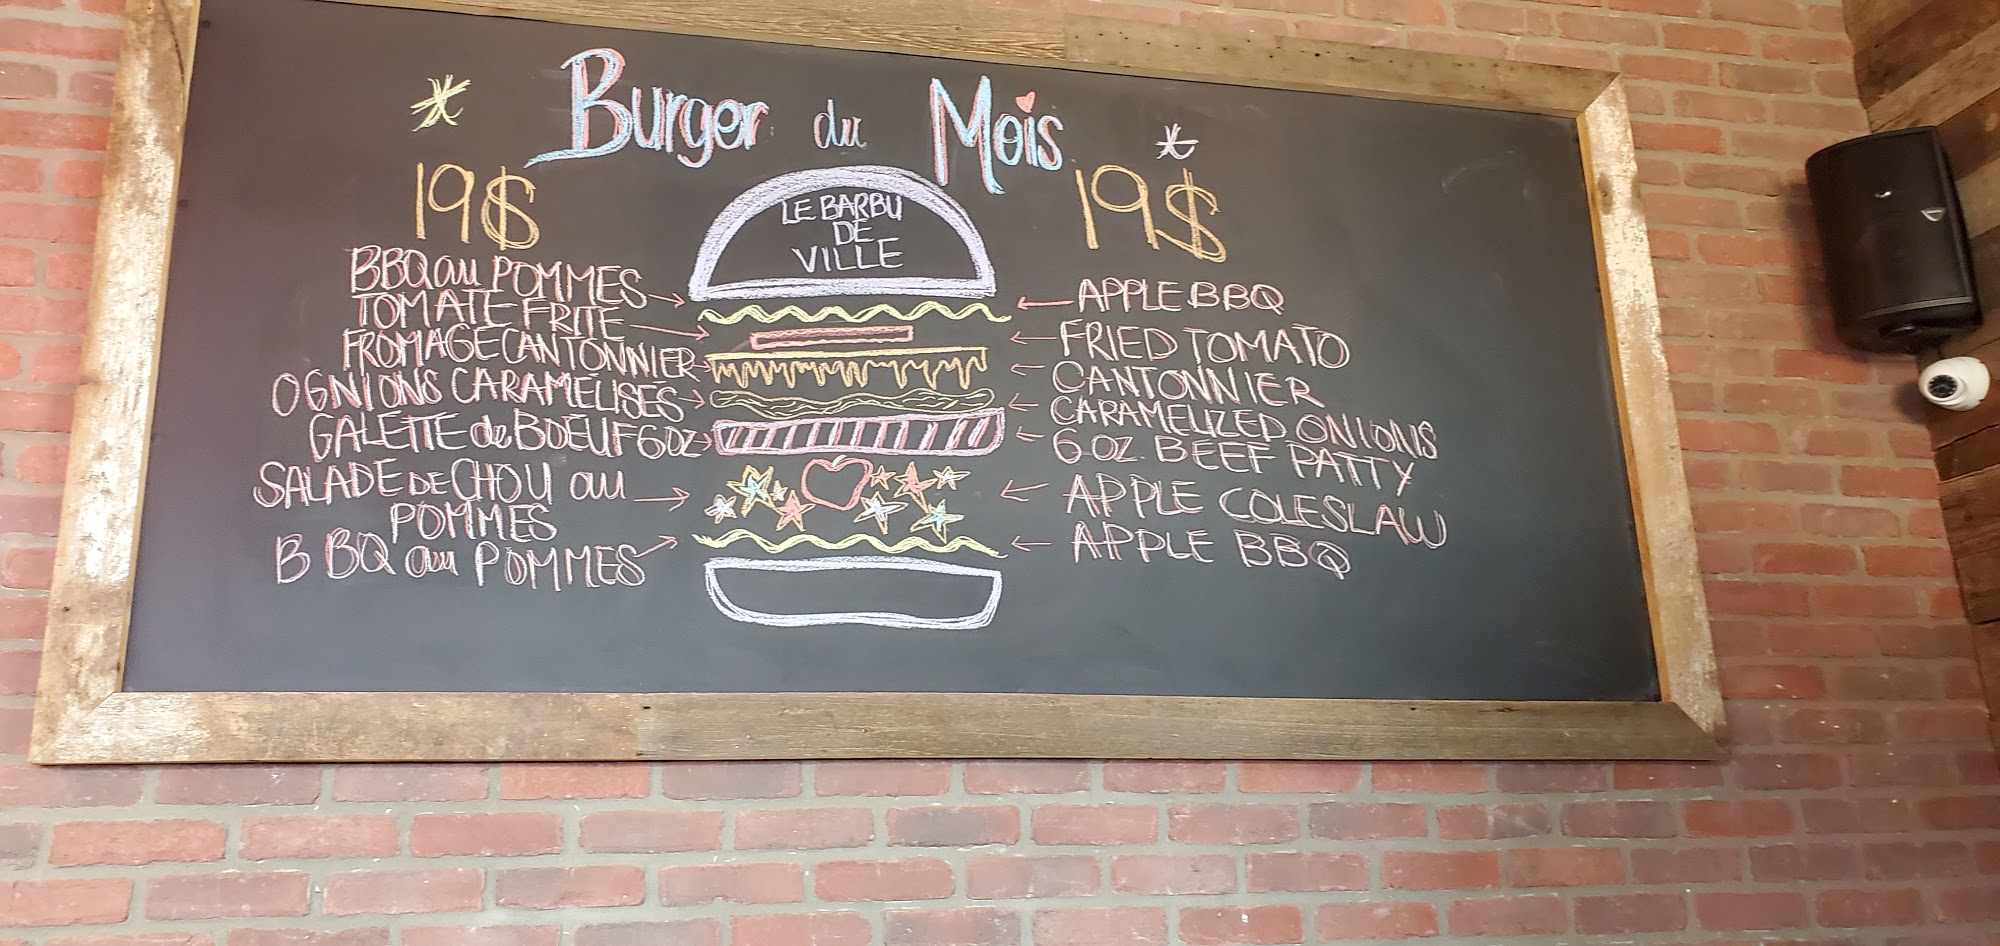 Burger du Mois
19$
19$
LE BARBU
DE
VILLE
BBQ au POMMES
TOMATE FRITE
FROMAGE CANTONNIER
OGNIONS CARAMELISÉS
GALETTE de BOEUF 6OZ
SALADE DE CHOU au
POMMES
BBQ au POMMES
APPLE BBQ
FRIED TOMATO
CANTONNIER
CARAMELIZED ONIONS
6 OZ. BEEF PATTY
APPLE COLESLAW
APPLE BBQ